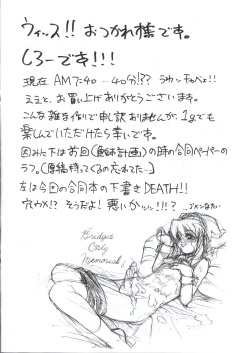 ウィッス!! おつかれ様です。
しろーでき!!!
現在 AM7:40 ー 40分!?? うわっ
ええと、お買い上げありがとうございます。
こんな雑な作りで申し訳ありませんが、1gでも
楽しんでいただけたら幸いです。
因みに下は前回(解体計画)の時の合同ペーパーの
ラフ。(原稿持ってくるの忘れた…)
左は今回の合同本の下書きDEATH!!
穴ウメ!? そうだよ! 悪いか
Bridget
Only
Memorial